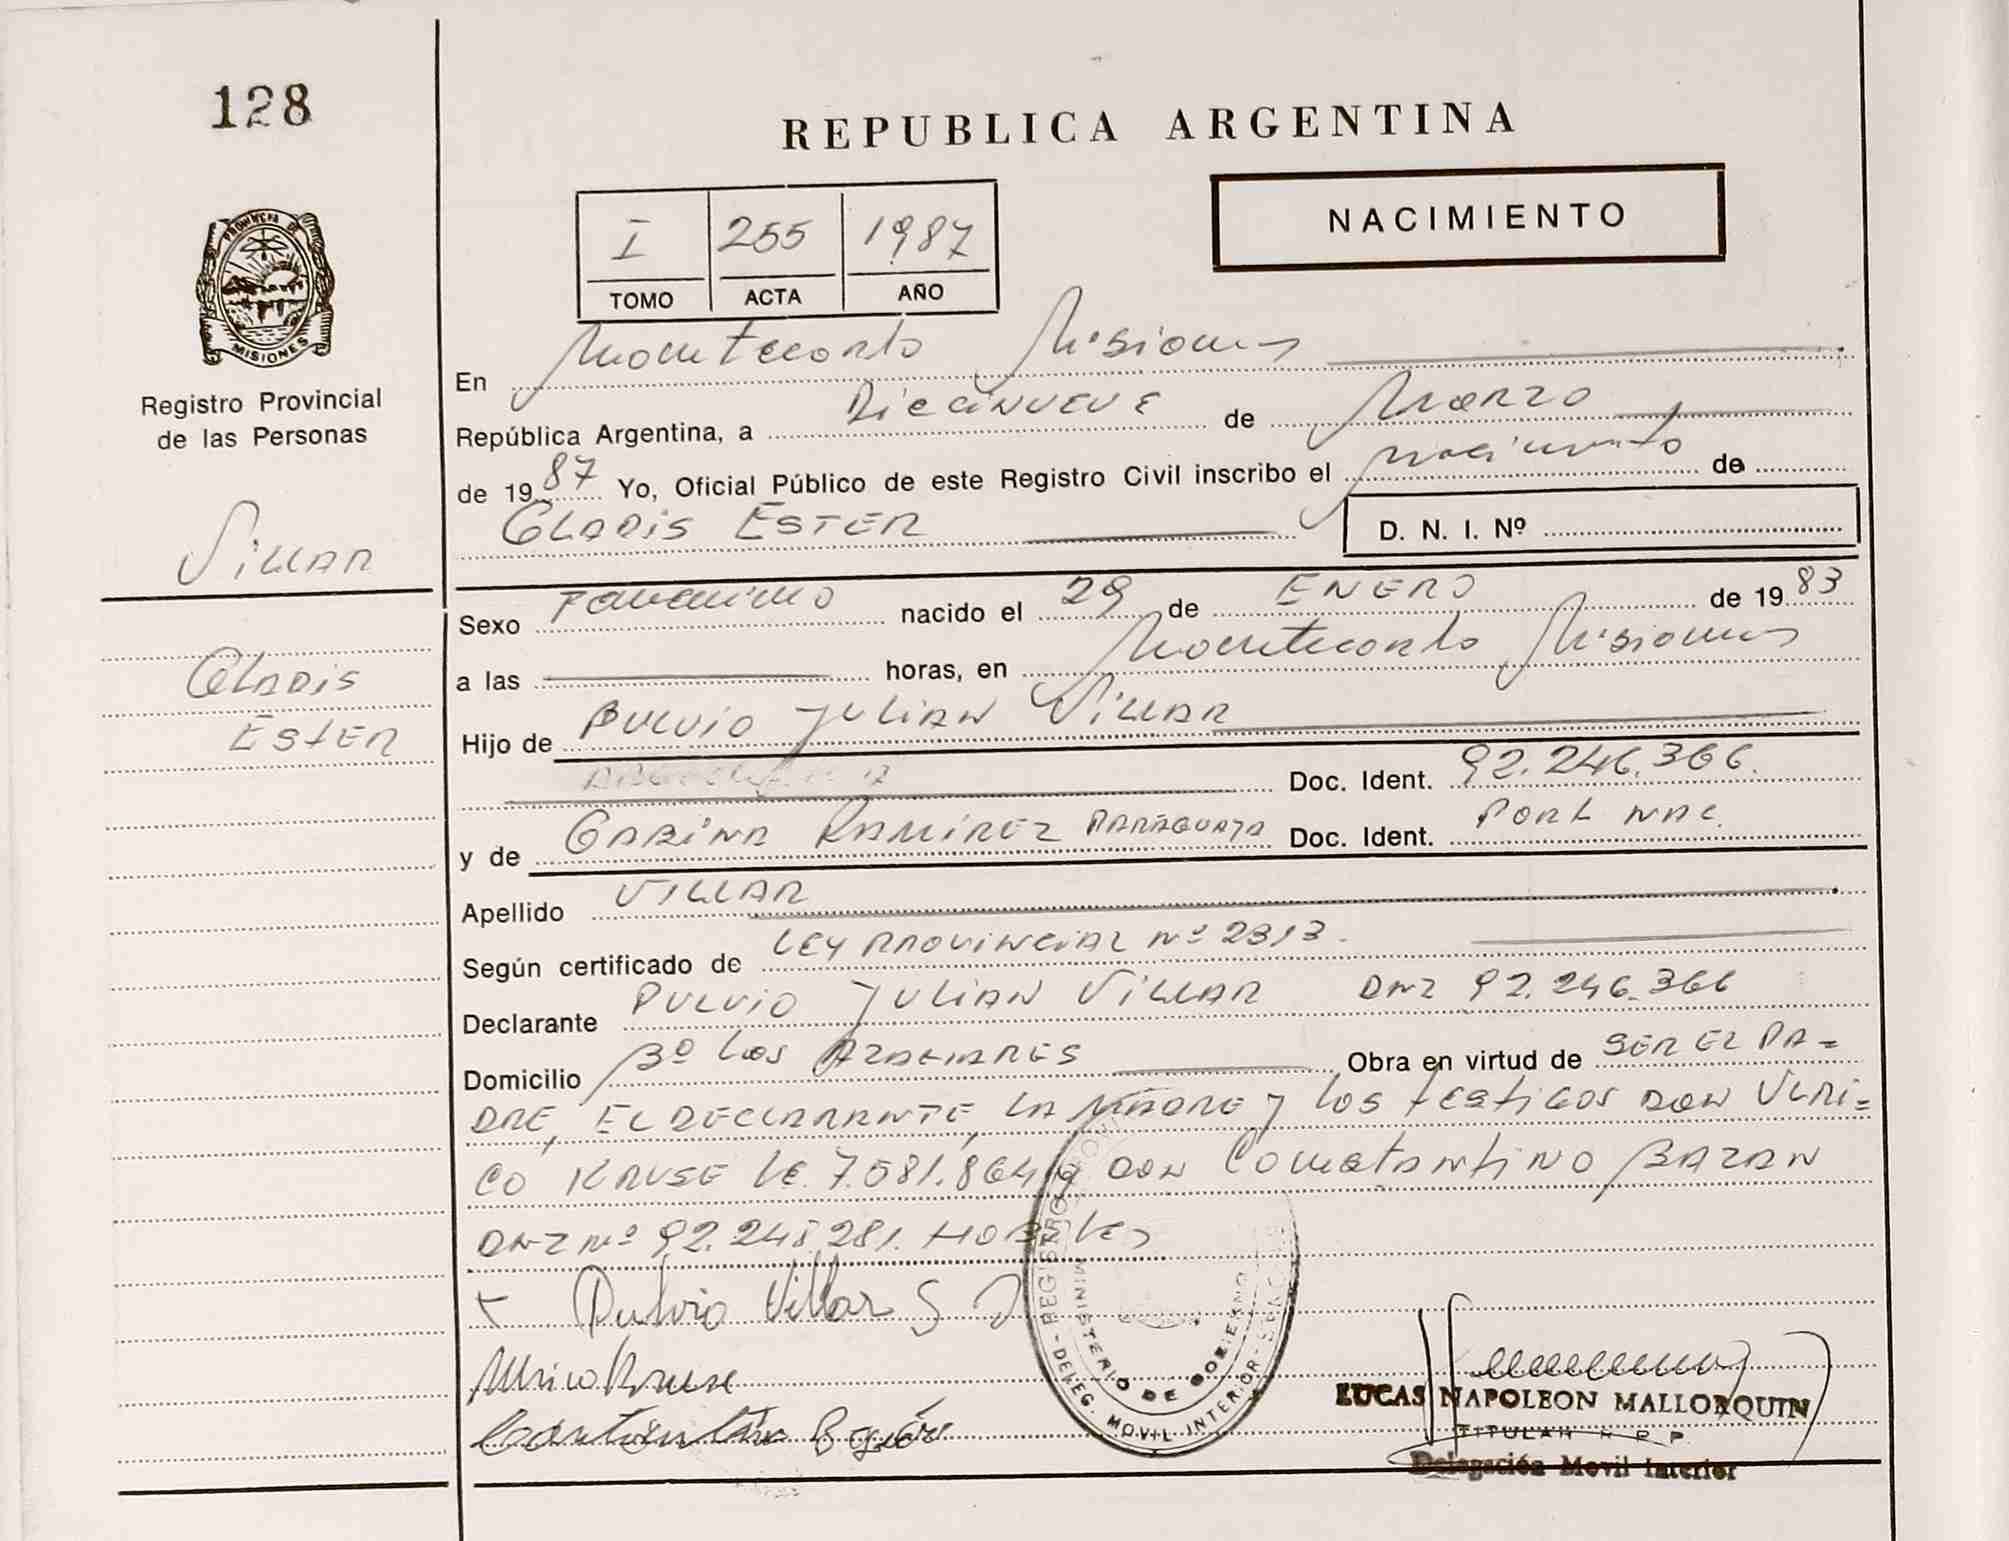 128
REPUBLICA ARGENTINA
NACIMIENTO
I 255 1987
TOMO ACTA AÑO
PROVINCIA DE
MISIONES
Registro Provincial
de las Personas
Villar
Gladis
Ester
En Montecarlo Misiones
República Argentina, a Diecinueve de Marzo
de 1987 Yo, Oficial Público de este Registro Civil inscribo el nacimiento de
Gladis Ester D. N. I. Nº
Sexo Femenino nacido el 29 de ENERO de 1983
a las horas, en Montecarlo Misiones
Hijo de Pulvio Julian Villar
Doc. Ident. 92.246.366.
y de Gabina Ramirez Paraguaya Doc. Ident. Port Nac.
Apellido Villar
Según certificado de Ley Provincial Nº 2313.
Declarante Pulvio Julian Villar DNI 92.246.366
Domicilio Bº Los Azahares Obra en virtud de ser el pa=
dre, el declarante, la madre y los testigos don Ulri=
co Krause LE. 7.581.864 y don Constantino Bazan
DNI Nº 92.248.281. Hábiles
Pulvio Villar S
Ulrico Krause
REGISTRO PROV
MINISTERIO DE GOBIERNO
DELEG. MOVIL INTERIOR
LUCAS NAPOLEON MALLORQUIN
TITULAR R P P
Delegación Movil Interior